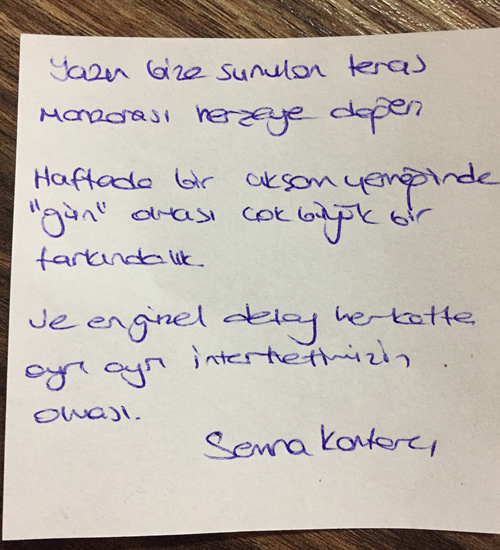 Yazın bize sunulan teras
Manzarası herşeye değer
Haftada bir akşam yemeğinde
"gün" olması çok büyük bir
farkındalık.
Ve en güzel detay her katta
ayrı ayrı internetimizin
olması.
Semra